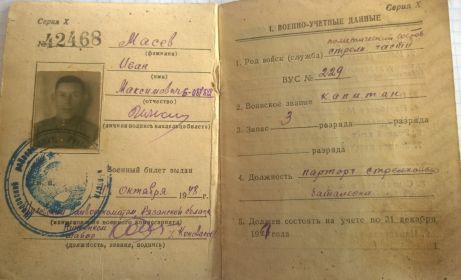 Серия Х
№ 42468
Масев
(фамилия)
Иван
(имя)
Максимович
(отчество)
(личная подпись владельца билета)
Военный билет выдан
октября 1948 г.
(наименование военного комиссариата)
Майор
(должность, звание, подпись)
Серия Х
I. ВОЕННО-УЧЕТНЫЕ ДАННЫЕ
политический состав
1. Род войск (служба) стрелк. части
ВУС № 229
2. Воинское звание капитан
3. Запас 3 разряда разряда
разряда
4. Должность парторг стрелкового
батальона
5. Должен состоять на учете по 31 декабря
года
1